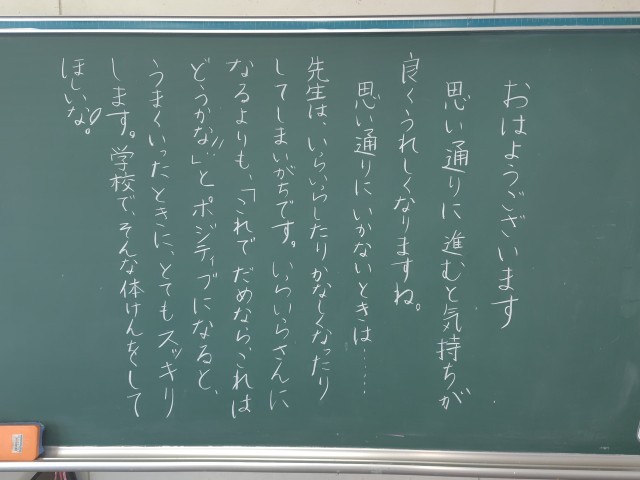 おはようございます
思い通りに進むと気持ちが
良くうれしくなりますね。
思い通りにいかないときは……
先生は、いらいらしたりかなしくなったり
してしまいがちです。いらいらさんに
なるよりも、「これでだめなら、これは
どうかな!!」とポジティブになると、
うまくいったときに、とてもスッキリ
します。学校で、そんな体けんをして
ほしいな。